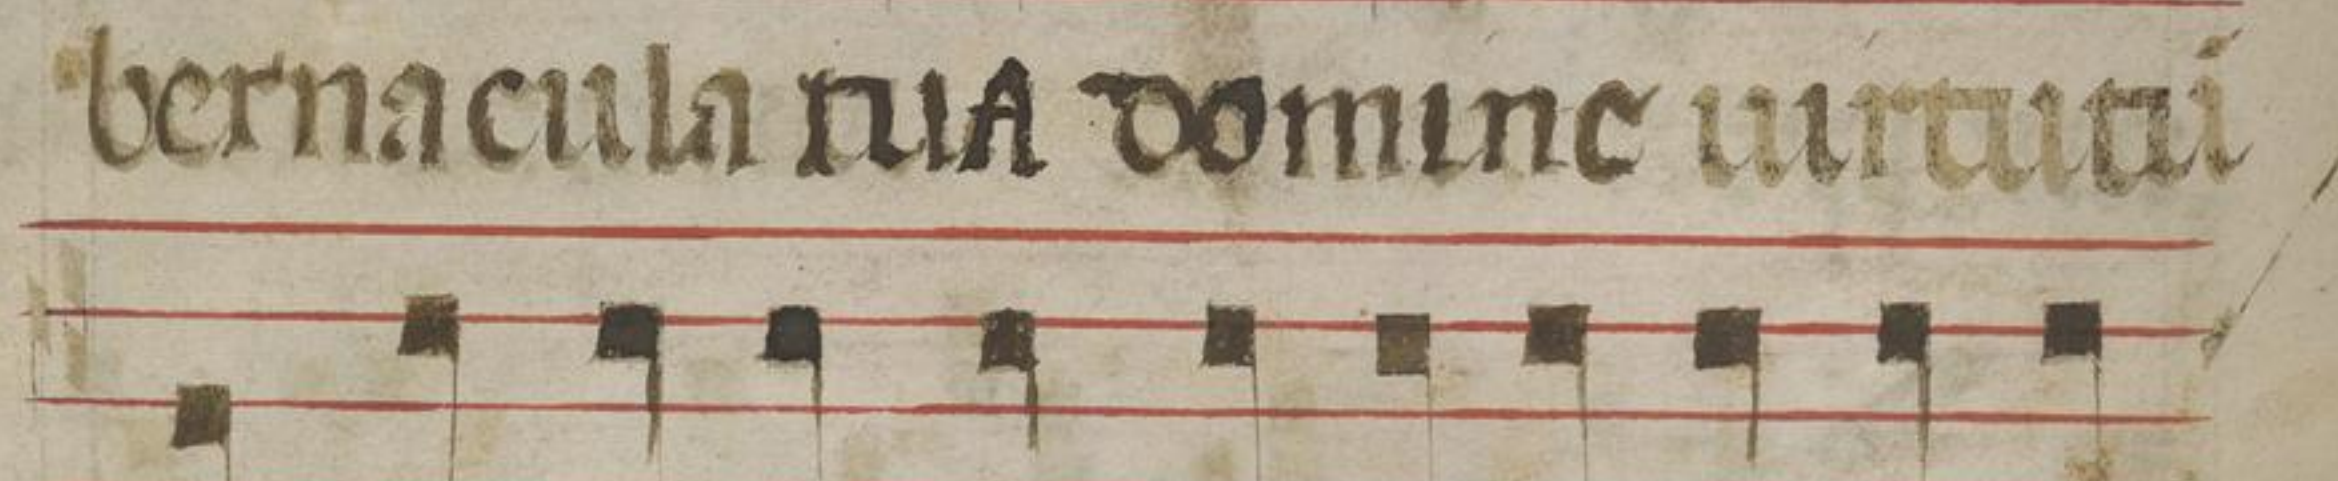 bernacula tua domine uirtutū